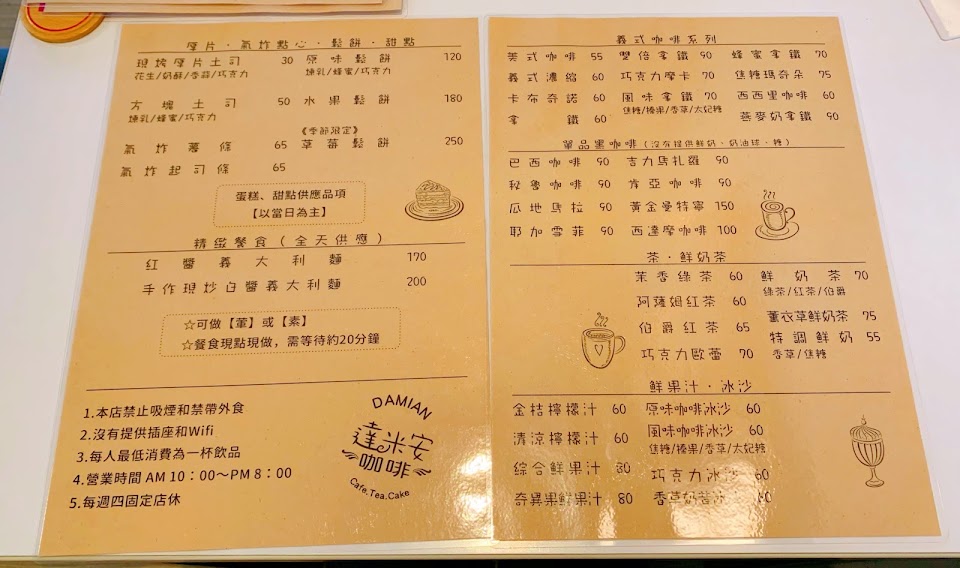 厚片·氣炸點心·鬆餅·甜點
現烤厚片土司 30
花生/奶酥/香蒜/巧克力
方塊土司 50
煉乳/蜂蜜/巧克力
氣炸薯條 65
氣炸起司條 65
原味鬆餅 120
煉乳/蜂蜜/巧克力
水果鬆餅 180
《季節限定》
草莓鬆餅 250
蛋糕、甜點供應品項
【以當日為主】
精緻餐食(全天供應)
紅醬義大利麵 170
手作現炒白醬義大利麵 200
☆可做【葷】或【素】
☆餐食現點現做,需等待約20分鐘
1.本店禁止吸煙和禁帶外食
2.沒有提供插座和Wifi
3.每人最低消費為一杯飲品
4.營業時間 AM 10：00～PM 8：00
5.每週四固定店休
DAMIAN
達米安
咖啡
Cafe.Tea.Cake
義式咖啡系列
美式咖啡 55
義式濃縮 60
卡布奇諾 60
拿鐵 60
雙倍拿鐵 90
巧克力摩卡 70
風味拿鐵 70
焦糖/榛果/香草/太妃糖
蜂蜜拿鐵 70
焦糖瑪奇朵 75
西西里咖啡 60
燕麥奶拿鐵 90
單品黑咖啡(沒有提供鮮奶·奶油球·糖)
巴西咖啡 90
秘魯咖啡 90
瓜地馬拉 90
耶加雪菲 90
吉力馬扎羅 90
肯亞咖啡 90
黃金曼特寧 150
西達摩咖啡 100
茶·鮮奶茶
茉香綠茶 60
阿薩姆紅茶 60
伯爵紅茶 65
巧克力歐蕾 70
鮮奶茶 70
綠茶/紅茶/伯爵
薰衣草鮮奶茶 75
特調鮮奶 55
香草/焦糖
鮮果汁·冰沙
金桔檸檬汁 60
清涼檸檬汁 60
綜合鮮果汁 80
奇異果鮮果汁 80
原味咖啡冰沙 60
風味咖啡冰沙 60
焦糖/榛果/香草/太妃糖
巧克力冰沙 60
香草奶